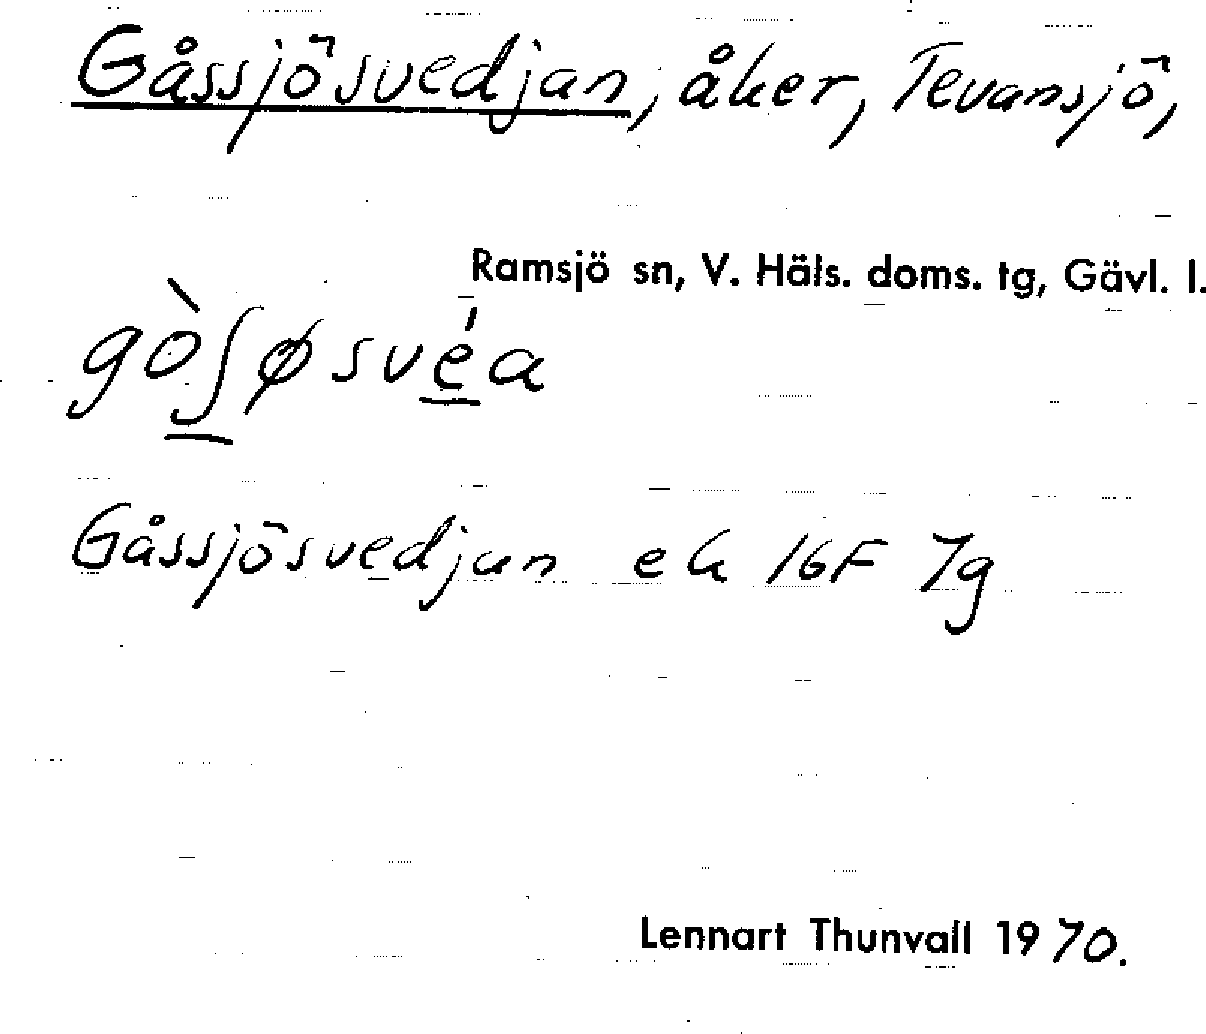 Gåssjösvedjan, åker, Tevansjö,
Ramsjö sn, V. Häls. doms. tg, Gävl. l.
gòʃøsvéa
Gåssjösvedjan ek 16F 7g
Lennart Thunvall 1970.